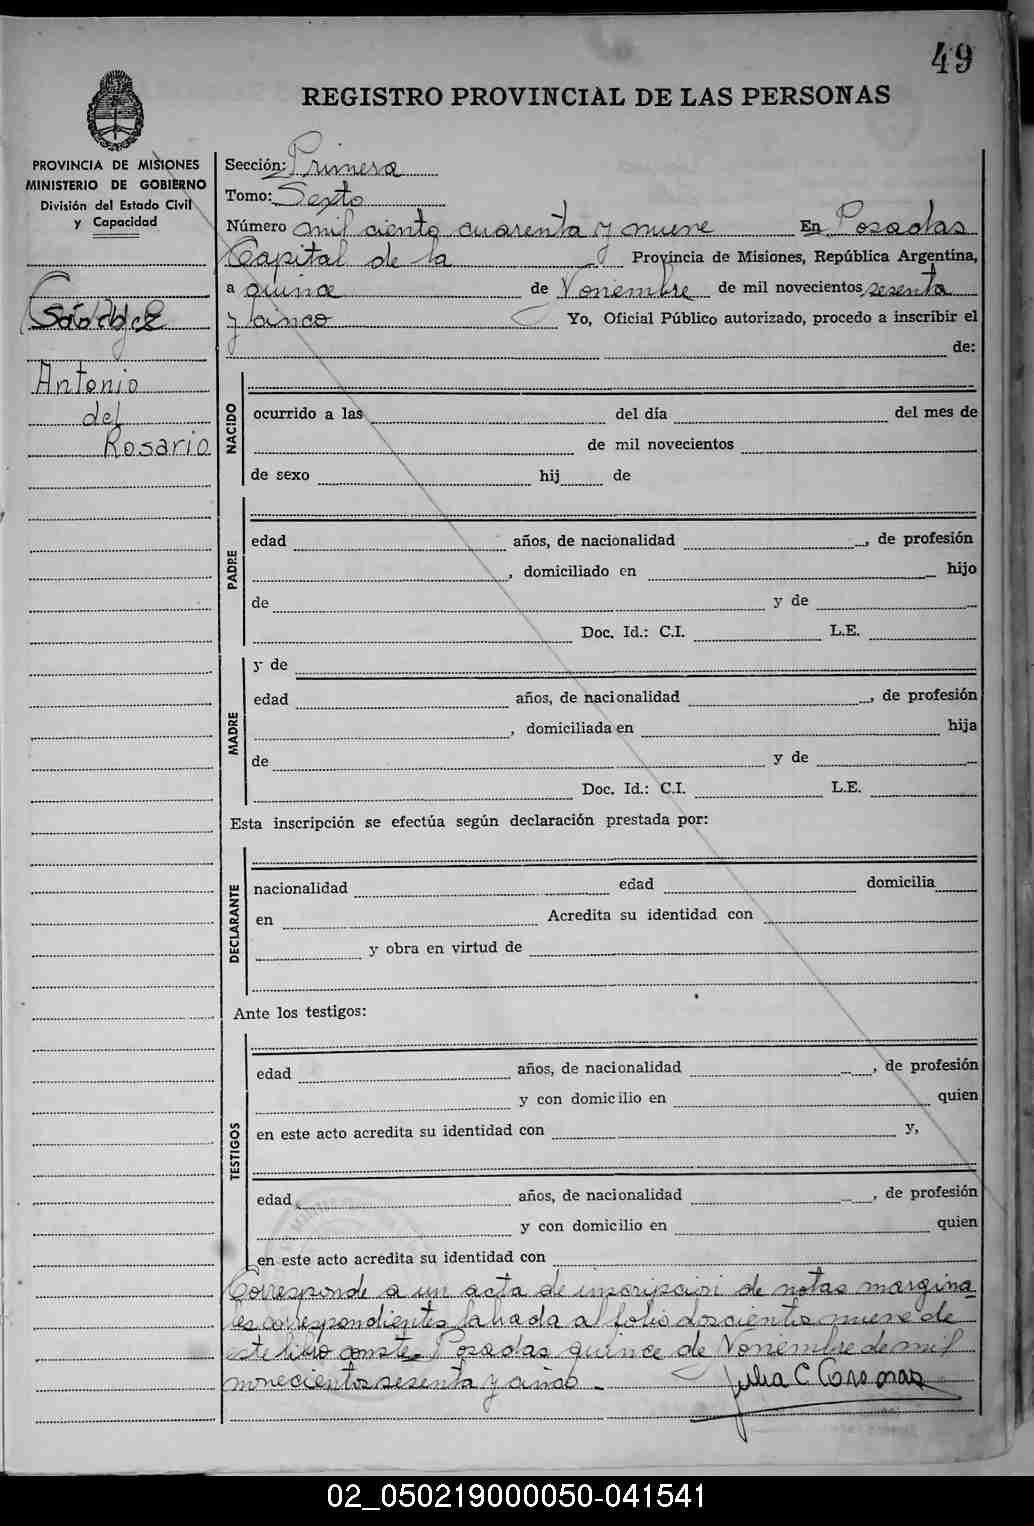 49
REGISTRO PROVINCIAL DE LAS PERSONAS
PROVINCIA DE MISIONES
MINISTERIO DE GOBIERNO
División del Estado Civil
y Capacidad
Antonio
del
Rosario
Sección: Primera
Tomo: Sexto
Número mil ciento cuarenta y nueve En Posadas
Capital de la Provincia de Misiones, República Argentina,
a quince de Noviembre de mil novecientos sesenta
y cinco Yo, Oficial Público autorizado, procedo a inscribir el
de:
NACIDO
ocurrido a las del día del mes de
de mil novecientos
de sexo hij de
PADRE
edad años, de nacionalidad , de profesión
, domiciliado en hijo
de y de
Doc. Id.: C.I. L.E.
MADRE
y de
edad años, de nacionalidad , de profesión
, domiciliada en hija
de y de
Doc. Id.: C.I. L.E.
Esta inscripción se efectúa según declaración prestada por:
DECLARANTE
nacionalidad edad domicilia
en Acredita su identidad con
y obra en virtud de
Ante los testigos:
TESTIGOS
edad años, de nacionalidad , de profesión
y con domicilio en quien
en este acto acredita su identidad con y,
edad años, de nacionalidad , de profesión
y con domicilio en quien
en este acto acredita su identidad con
Corresponde a un acta de inscripción de notas margina
les correspondientes labrada al folio doscientos nueve de
este libro conste. Posadas quince de Noviembre de mil
novecientos sesenta y cinco -
Julia C.
02_050219000050-041541